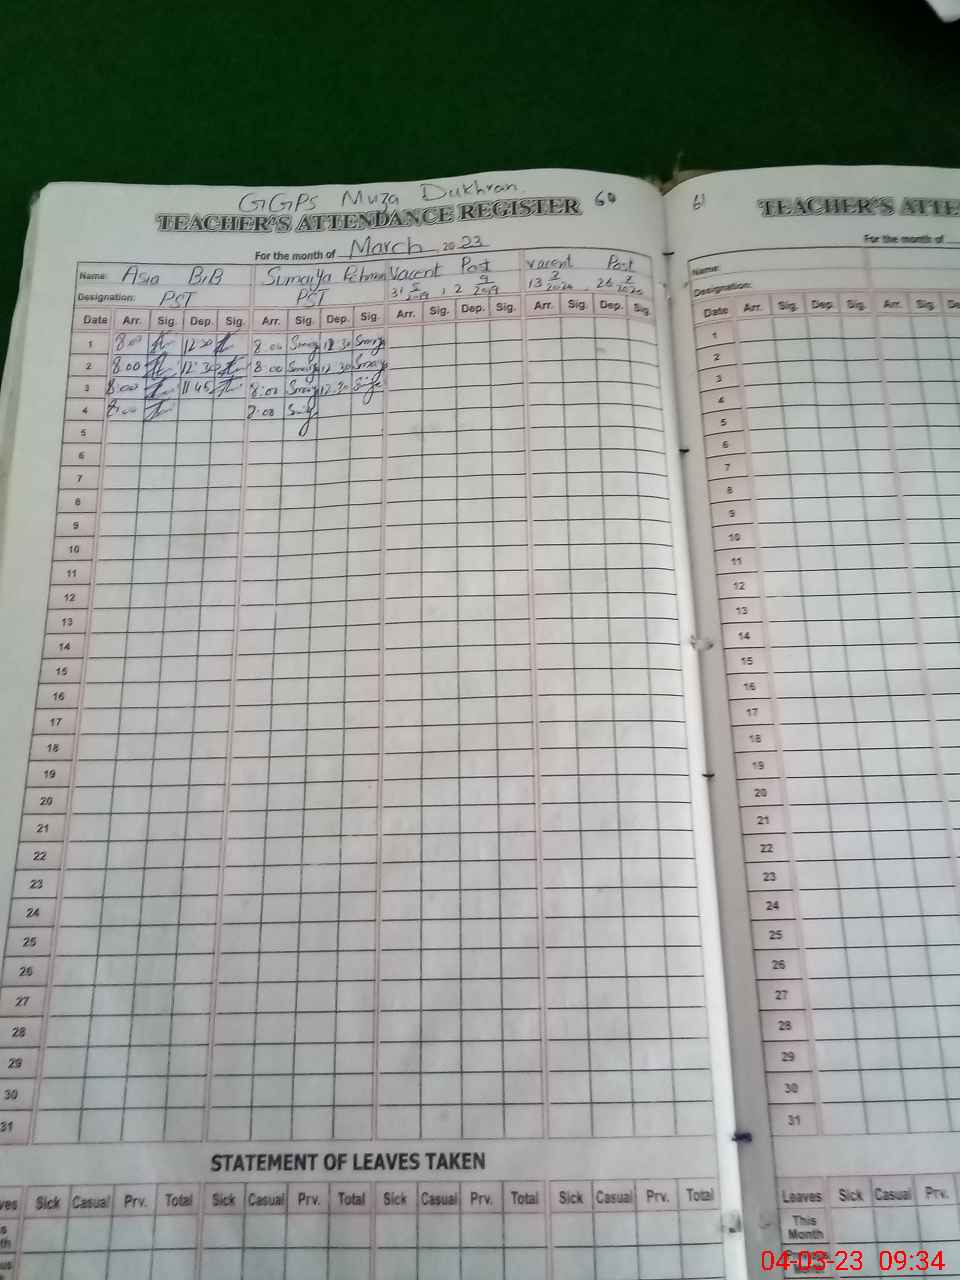 GGPS Muza Dukhran.
TEACHER'S ATTENDANCE REGISTER 60
For the month of March 2023
Name: Asia BiBi Sumaiya Rehman Vacent Post Vacent Post
Designation: PST PST
Date Arr. Sig. Dep. Sig. Arr. Sig. Dep. Sig. Arr. Sig. Dep. Sig. Arr. Sig. Dep. Sig.
1 8:00 12:30 8:00 12:30
2 8:00 12:30 8:00 12:30
3 8:00 11:45 8:00 12:30
4 8:00
5
6
7
8
9
10
11
12
13
14
15
16
17
18
19
20
21
22
23
24
25
26
27
28
29
30
31
STATEMENT OF LEAVES TAKEN
ves Sick Casual Prv. Total Sick Casual Prv. Total Sick Casual Prv. Total Sick Casual Prv. Total
s
th
us
61 TEACHER'S ATTE
For the month of
Name:
Designation:
Date Arr. Sig. Dep. Sig. Arr. Sig.
1
2
3
4
5
6
7
8
9
10
11
12
13
14
15
16
17
18
19
20
21
22
23
24
25
26
27
28
29
30
31
Leaves Sick Casual Prv.
This
Month
04-03-23 09:34